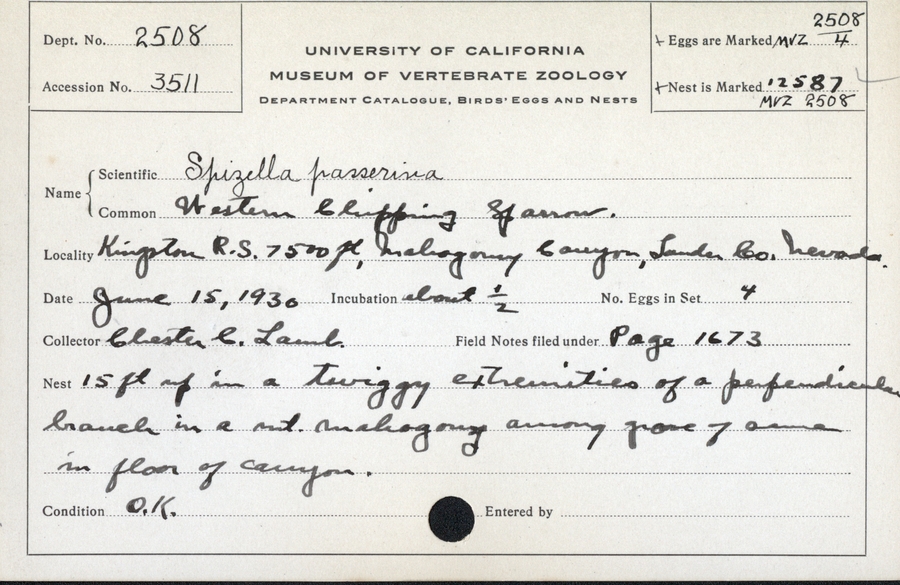 Dept. No. 2508
Accession No. 3511
UNIVERSITY OF CALIFORNIA
MUSEUM OF VERTEBRATE ZOOLOGY
DEPARTMENT CATALOGUE, BIRDS' EGGS AND NESTS
Eggs are Marked MVZ 2508/4
Nest is Marked 12587
MVZ 2508
Name
Scientific Spizella passerina
Common Western Chipping Sparrow.
Locality Kingston R.S. 7500 ft, Mahogony Canyon, Lander Co. Nevada.
Date June 15, 1930 Incubation about 1/2 No. Eggs in Set 4
Collector Chester C. Lamb. Field Notes filed under Page 1673
Nest 15 ft up in a twiggy extremities of a perpendicular
branch in a mt. mahogony among grove of same
in floor of canyon.
Condition O.K. Entered by